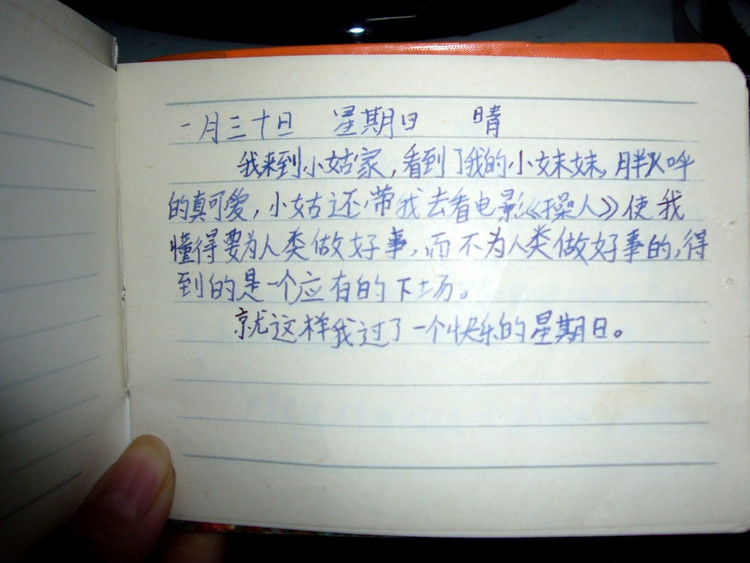 一月三十日 星期日 晴
我来到小姑家，看到了我的小妹妹，胖呼呼
的真可爱，小姑还带我去看电影《操人》使我
懂得要为人类做好事，而不为人类做好事的，得
到的是一个应有的下场。
就这样我过了一个快乐的星期日。